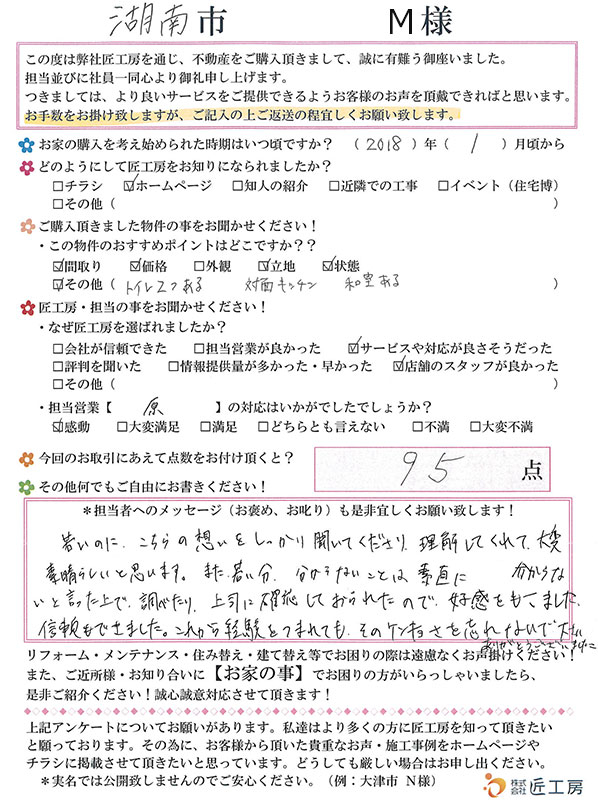 湖南市 M様
この度は弊社匠工房を通じ、不動産をご購入頂きまして、誠に有難う御座いました。
担当並びに社員一同心より御礼申し上げます。
つきましては、より良いサービスをご提供できるようお客様のお声を頂戴できればと思います。
お手数をお掛け致しますが、ご記入の上ご返送の程宜しくお願い致します。
お家の購入を考え始められた時期はいつ頃ですか？ （2018）年（1）月頃から
どのようにして匠工房をお知りになられましたか？
□チラシ ☑ホームページ □知人の紹介 □近隣での工事 □イベント（住宅博）
□その他（ ）
ご購入頂きました物件の事をお聞かせください！
・この物件のおすすめポイントはどこですか？？
☑間取り ☑価格 □外観 ☑立地 ☑状態
☑その他（ トイレ2つある 対面キッチン 和室ある ）
匠工房・担当の事をお聞かせください！
・なぜ匠工房を選ばれましたか？
□会社が信頼できた □担当営業が良かった ☑サービスや対応が良さそうだった
□評判を聞いた □情報提供量が多かった・早かった ☑店舗のスタッフが良かった
□その他（ ）
・担当営業【 原 】の対応はいかがでしたでしょうか？
☑感動 □大変満足 □満足 □どちらとも言えない □不満 □大変不満
今回のお取引にあえて点数をお付け頂くと？ 95点
その他何でもご自由にお書きください！
＊担当者へのメッセージ（お褒め、お叱り）も是非宜しくお願い致します！
若いのに、こちらの想いをしっかり聞いてくださり、理解してくれて、大変
素晴らしいと思います。また、若い分、分からないことは素直に 分からな
いと言った上で、調べたり、上司に確認しておられたので、好感をもてました。
信頼もできました。これから経験をつまれても、そのケンキョさを忘れないで下さい
ありがとうございました
リフォーム・メンテナンス・住み替え・建て替え等でお困りの際は遠慮なくお声掛けください！
また、ご近所様・お知り合いに【お家の事】でお困りの方がいらっしゃいましたら、
是非ご紹介ください！誠心誠意対応させて頂きます！
上記アンケートについてお願いがあります。私達はより多くの方に匠工房を知って頂きたい
と願っております。その為に、お客様から頂いた貴重なお声・施工事例をホームページや
チラシに掲載させて頂きたいと思っています。どうしても厳しい場合はお申し出ください。
＊実名では公開致しませんのでご安心ください。（例：大津市 N様）
株式会社 匠工房